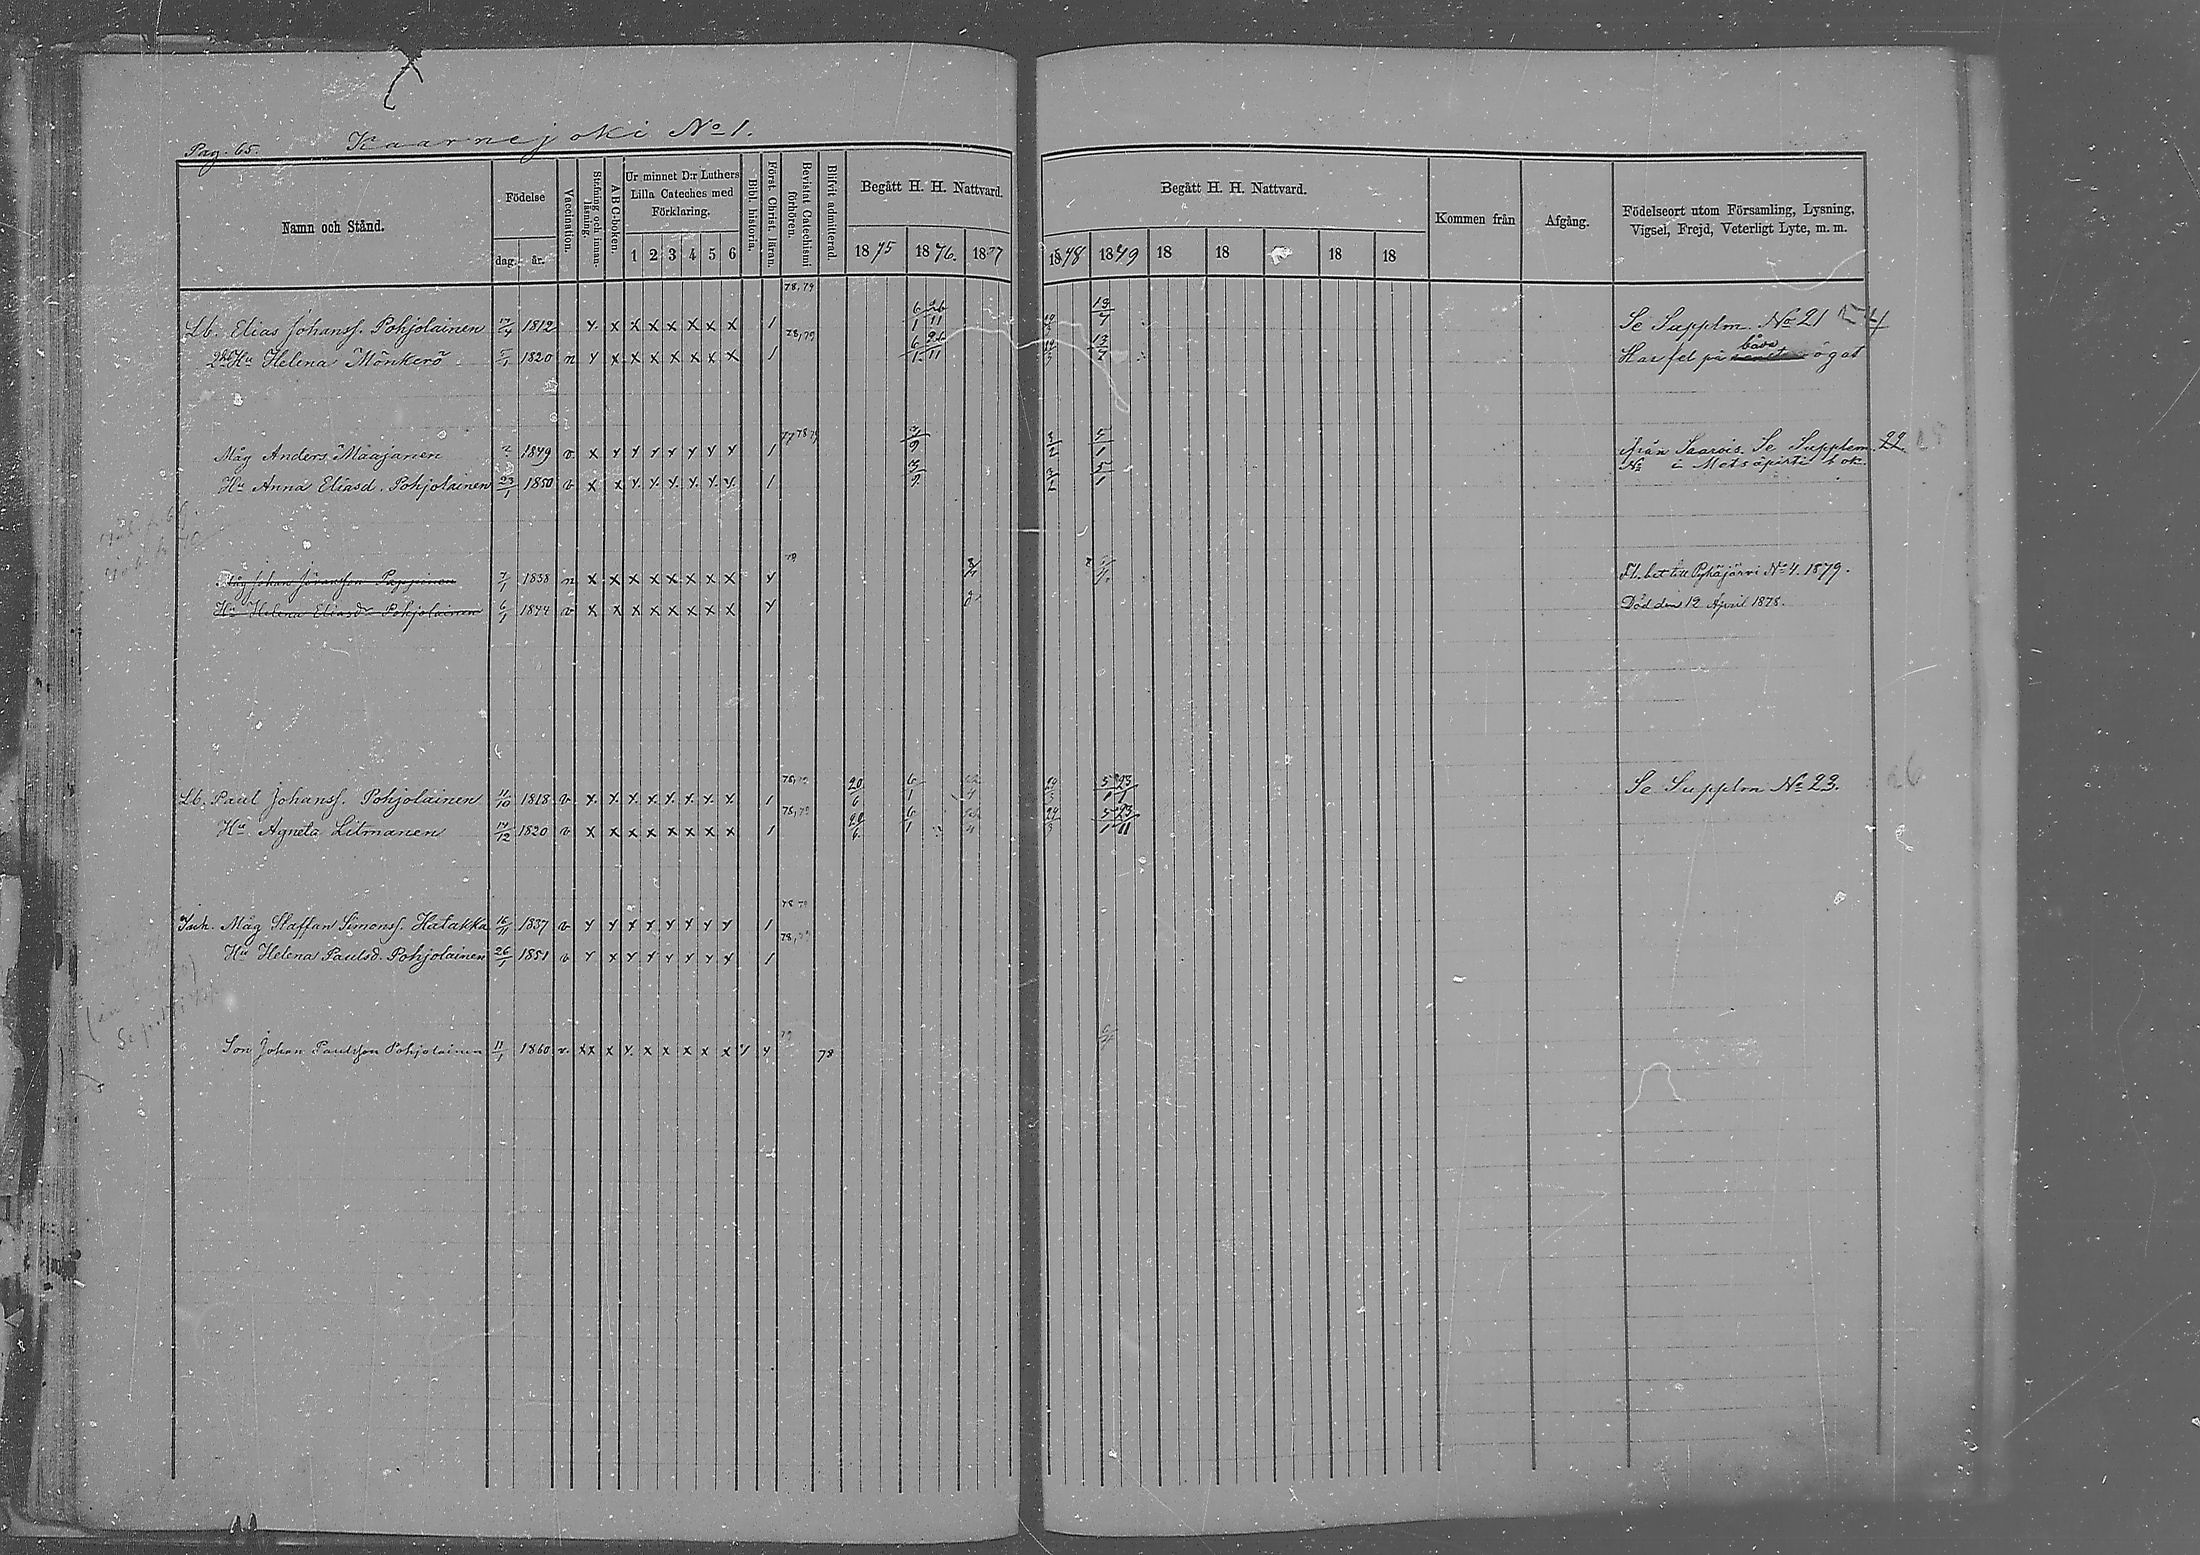 Pag. 65. Kaarnejoki No 1.
Namn och Stånd.
Födelse
dag. år.
Vaccination.
Stafning och innanläsning.
ABC-boken.
Ur minnet D:r Luthers Lilla Cateches med Förklaring.
1 2 3 4 5 6
Bibl. historia.
Först. Christ. läran.
Bevistat Catechismi förhören.
Blifvit admitterad.
Begått H. H. Nattvard.
1875 1876. 1877
Begått H. H. Nattvard.
1878 1879 18 18 18 18
Kommen från
Afgång.
Födelseort utom Församling, Lysning, Vigsel, Frejd, Veterligt Lyte, m. m.
78, 79
Lb. Elias Johanss. Pohjolainen 1812 x x x x x x x x 1 6/1 26/11 13/7 Se Supplm. No 21
78, 79
2dra Hu Helena Mönkerö 1820 n x x x x x x x x 1 6/1 26/11 13/7 Har fel på båda ögat
77 78 79
Måg Anders Maajanen 1849 v x x x x x x x x 1 3/9 3/2 5/1 ifrån Saarois. Se Supplem. 22
Hu Anna Eliasd. Pohjolainen 23/1 1850 v x x x x x x x x 1 3/9 3/2 5/1 No i Metsäpirti bok.
79
Måg Johan Pappinen 7/1 1838 n x x x x x x x x x Fl. bet till Pyhäjärvi No 4. 1879.
Hu Helena Eliasdr Pohjolainen 6/1 1844 v x x x x x x x x x Död den 12 April 1878.
78, 79
Lb. Paul Johanss. Pohjolainen 11/10 1818 v x x x x x x x x 1 20/6 6/1 5/1 23 Se Supplm No 23. 26
78, 79
Hu Agneta Litmanen 14/12 1820 v x x x x x x x x 1 20/6 6/1 24/3 5/1 23/11
78 79
Inh. Måg Staffan Simonss. Hatakka 16/11 1837 v x x x x x x x x 1
78, 79
Hu Helena Paulsd. Pohjolainen 26/1 1851 v x x x x x x x x 1
79
Son Johan Paulsson Pohjolainen 11/1 1860 v. xx x x x x x x x x x 78